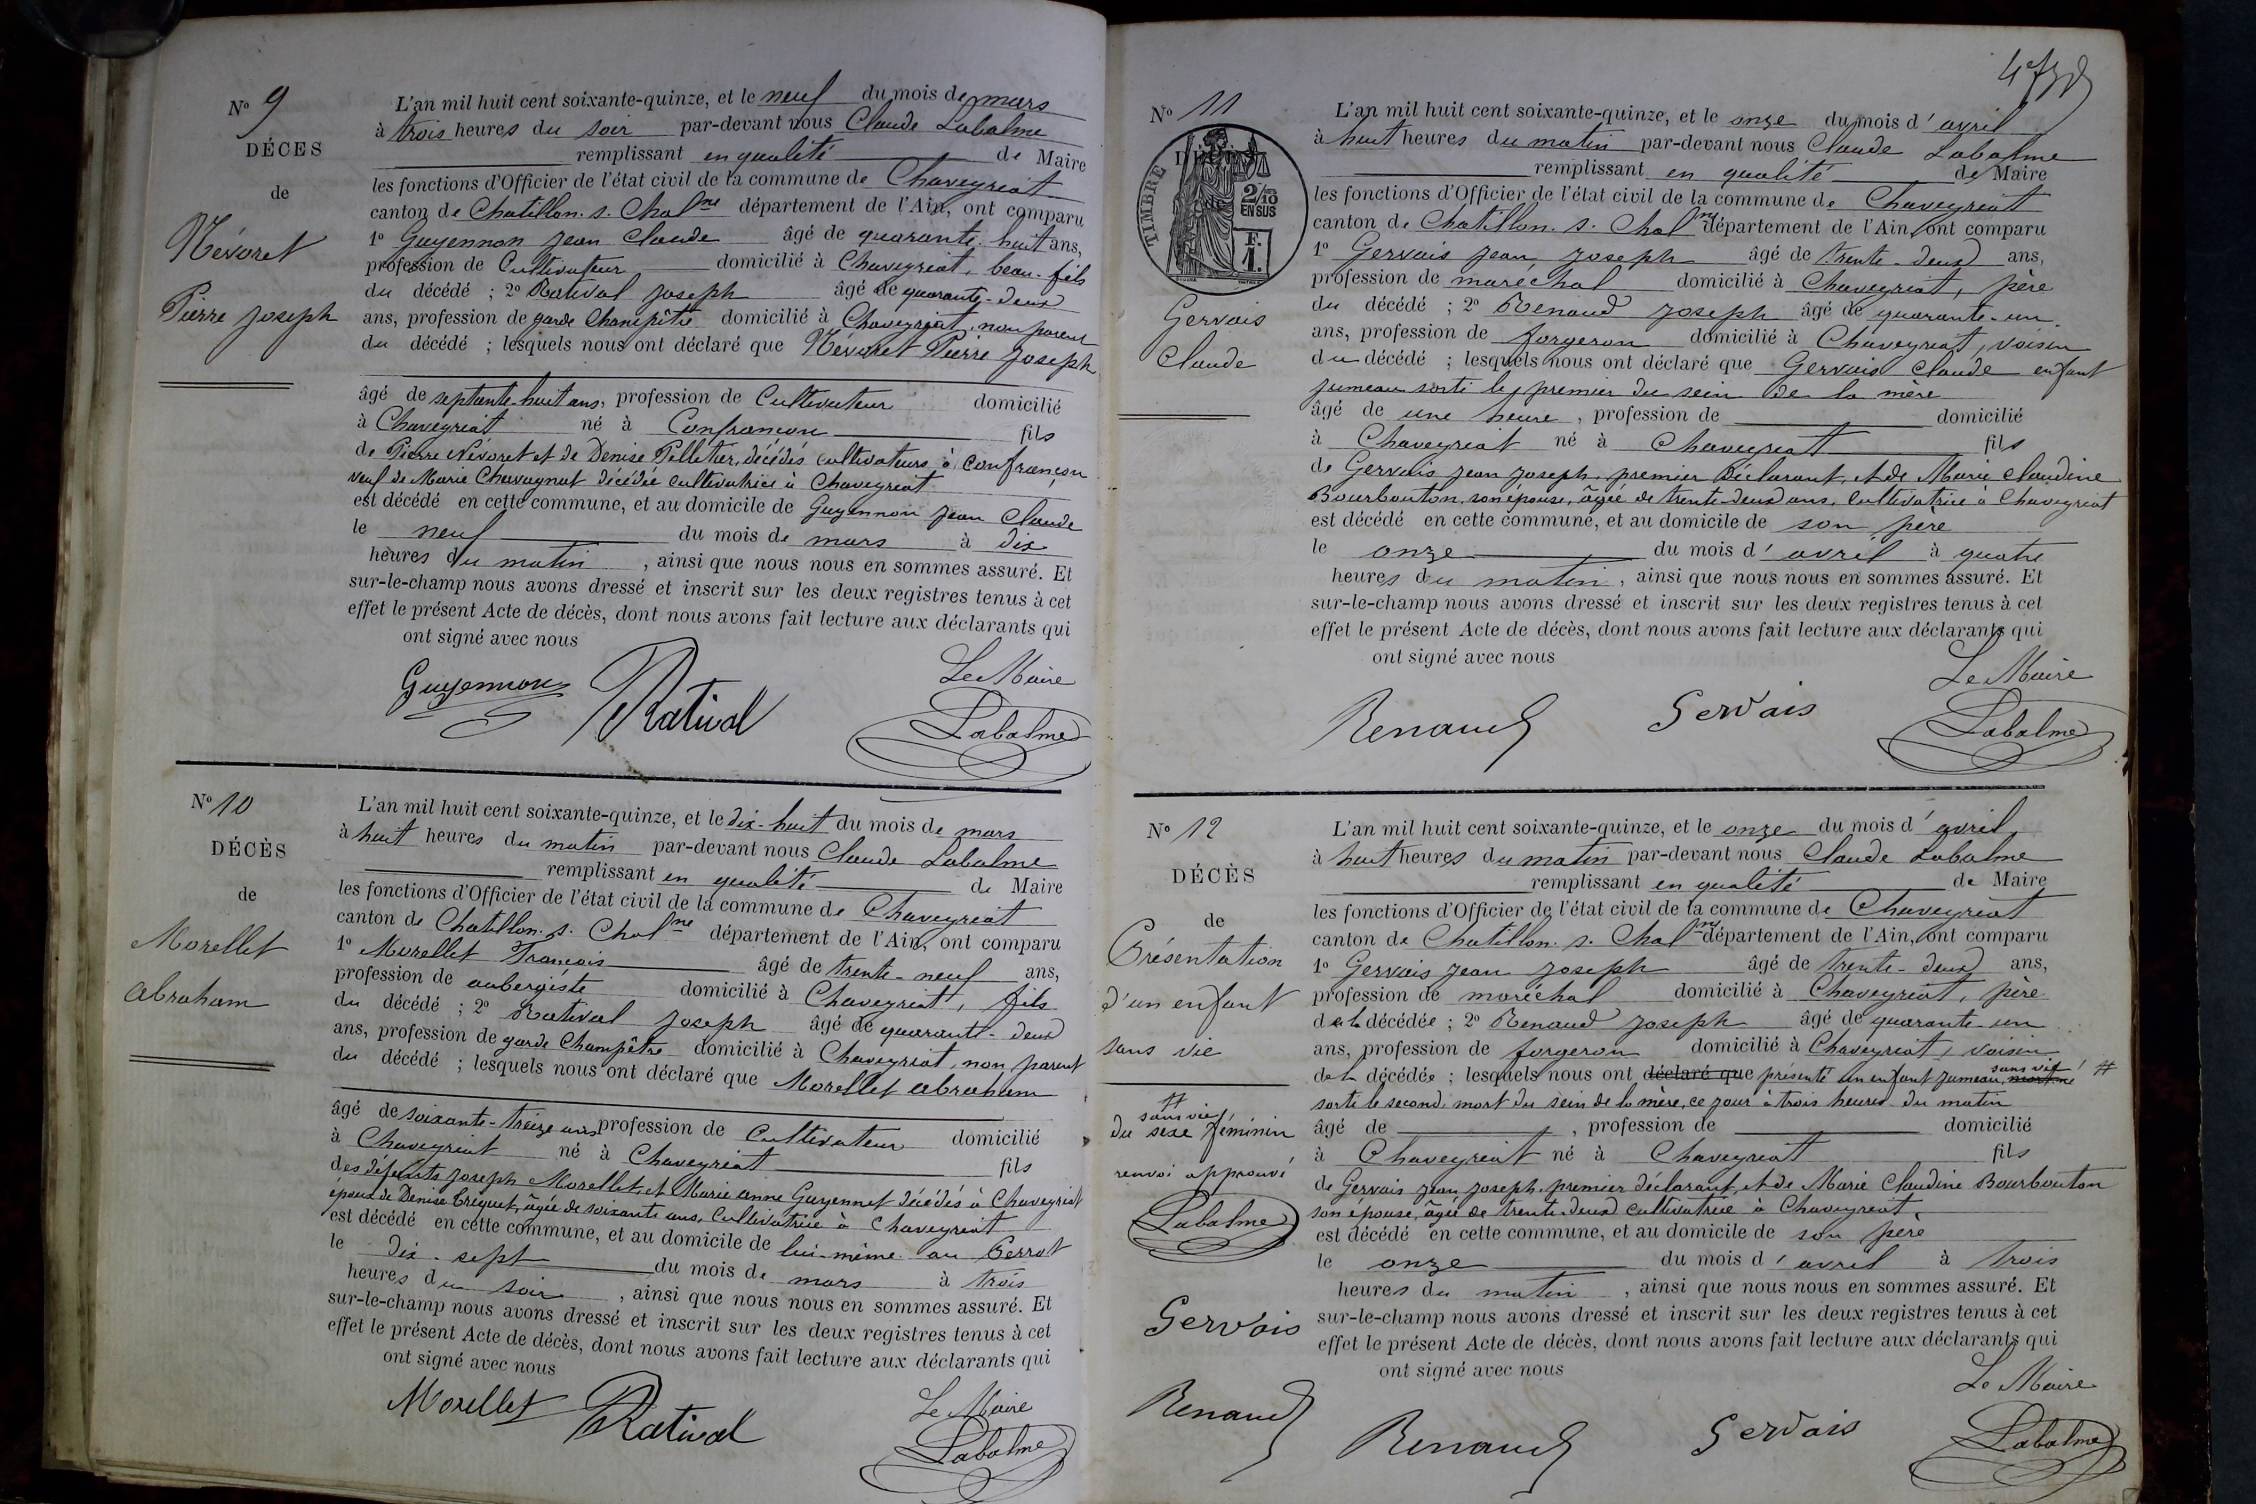 N° 9
DÉCES
de
Névoret
Pierre Joseph
L'an mil huit cent soixante-quinze, et le neuf du mois de mars
à trois heures du soir par-devant nous Claude Labalme
remplissant en qualité de Maire
les fonctions d'Officier de l'état civil de la commune de Chaveyriat
canton de Chatillon. s. Chal ne département de l'Ain, ont comparu
1° Guyennon Jean Claude âgé de quarante-huit ans,
profession de Cultivateur domicilié à Chaveyriat, beau-fils
du décédé ; 2° Rativol Joseph âgé de quarante-deux
ans, profession de garde Champêtre domicilié à Chaveyriat, non parent
du décédé ; lesquels nous ont déclaré que Névoret Pierre Joseph
âgé de septante-huit ans, profession de Cultivateur domicilié
à Chaveyriat né à Confrançon fils
de Pierre Névoret et de Denise Pelletier, décédés cultivateurs à Confrançon
veuf de Marie Chavagnat décédée cultivatrice à Chaveyriat
est décédé en cette commune, et au domicile de Guyennon Jean Claude
le neuf du mois de mars à dix
heures du matin, ainsi que nous nous en sommes assuré. Et
sur-le-champ nous avons dressé et inscrit sur les deux registres tenus à cet
effet le présent Acte de décès, dont nous avons fait lecture aux déclarants qui
ont signé avec nous
Le Maire
Guyennon Rativol Labalme
N° 10
DÉCÈS
de
Morellet
Abraham
L'an mil huit cent soixante-quinze, et le dix-huit du mois de mars
à huit heures du matin par-devant nous Claude Labalme
remplissant en qualité de Maire
les fonctions d'Officier de l'état civil de la commune de Chaveyriat
canton de Chatillon. s. Chal ne département de l'Ain, ont comparu
1° Morellet François âgé de trente-neuf ans,
profession de aubergiste domicilié à Chaveyriat, fils
du décédé ; 2° Rativol Joseph âgé de quarante-deux
ans, profession de garde Champêtre domicilié à Chaveyriat, non parent
du décédé ; lesquels nous ont déclaré que Morellet Abraham
âgé de soixante-treize ans, profession de Cultivateur domicilié
à Chaveyriat né à Chaveyriat fils
des défunts Joseph Morellet, et Marie Anne Guyennet décédés à Chaveyriat
époux de Denise Créquet, âgée de soixante ans, Cultivatrice à Chaveyriat
est décédé en cette commune, et au domicile de lui-même au Perrot
le dix-sept du mois de mars à trois
heures du soir, ainsi que nous nous en sommes assuré. Et
sur-le-champ nous avons dressé et inscrit sur les deux registres tenus à cet
effet le présent Acte de décès, dont nous avons fait lecture aux déclarants qui
ont signé avec nous
Le Maire
Morellet Rativol Labalme
N° 11
TIMBRE
2/10
EN SUS
F.
1.
Gervais
Claude
L'an mil huit cent soixante-quinze, et le onze du mois d'avril
à huit heures du matin par-devant nous Claude Labalme
remplissant en qualité de Maire
les fonctions d'Officier de l'état civil de la commune de Chaveyriat
canton de Chatillon. s. Chal ne département de l'Ain, ont comparu
1° Gervais Jean Joseph âgé de trente-deux ans,
profession de maréchal domicilié à Chaveyriat, père
du décédé ; 2° Renaud Joseph âgé de quarante-un
ans, profession de forgeron domicilié à Chaveyriat, voisin
du décédé ; lesquels nous ont déclaré que Gervais Claude enfant
jumeau sorti le premier du sein de la mère
âgé de une heure, profession de domicilié
à Chaveyriat né à Chaveyriat fils
de Gervais Jean Joseph, premier déclarant, et de Marie Claudine
Bourbouton, son épouse, âgée de trente-deux ans, Cultivatrice à Chaveyriat
est décédé en cette commune, et au domicile de son père
le onze du mois d'avril à quatre
heures du matin, ainsi que nous nous en sommes assuré. Et
sur-le-champ nous avons dressé et inscrit sur les deux registres tenus à cet
effet le présent Acte de décès, dont nous avons fait lecture aux déclarants qui
ont signé avec nous
Le Maire
Renaud Gervais Labalme
N° 12
DÉCÈS
de
Présentation
d'un enfant
sans vie
# sans vie
du sexe féminin
renvoi approuvé
Labalme
Gervais
Renaud
L'an mil huit cent soixante-quinze, et le onze du mois d'avril
à huit heures du matin par-devant nous Claude Labalme
remplissant en qualité de Maire
les fonctions d'Officier de l'état civil de la commune de Chaveyriat
canton de Chatillon. s. Chal ne département de l'Ain, ont comparu
1° Gervais Jean Joseph âgé de trente-deux ans,
profession de maréchal domicilié à Chaveyriat, père
de la décédée ; 2° Renaud Joseph âgé de quarante-un
ans, profession de forgeron domicilié à Chaveyriat, voisin
de la décédée ; lesquels nous ont déclaré que présenté un enfant jumeau, mort né sans vie #
sorti le second, mort du sein de la mère, ce jour à trois heures du matin
âgé de , profession de domicilié
à Chaveyriat né à Chaveyriat fils
de Gervais Jean Joseph, premier déclarant, et de Marie Claudine Bourbouton
son épouse, âgée de trente-deux cultivatrice à Chaveyriat,
est décédé en cette commune, et au domicile de son père
le onze du mois d'avril à trois
heures du matin, ainsi que nous nous en sommes assuré. Et
sur-le-champ nous avons dressé et inscrit sur les deux registres tenus à cet
effet le présent Acte de décès, dont nous avons fait lecture aux déclarants qui
ont signé avec nous
Le Maire
Renaud Gervais Labalme